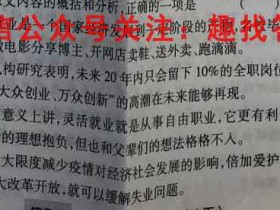 文内容的概括和分析,正确的一项是 ( )
业是一个国家经济发展到一定阶段的
信公众号关注：趣找答
电影分享博主、开网店卖鞋、送外卖、跑滴滴。
机构研究表明,未来20年内只会留下10%的全职岗位
大众创业、万众创新”的高潮在未来能够再现。
意义上讲,灵活就业就是从事自由职业,它更有利
的理想抱负,但也和父辈们的想法格格不入。
大限度减少疫情对经济社会发展的影响,倍加爱护
大改革开放,就可以缓解失业问题。